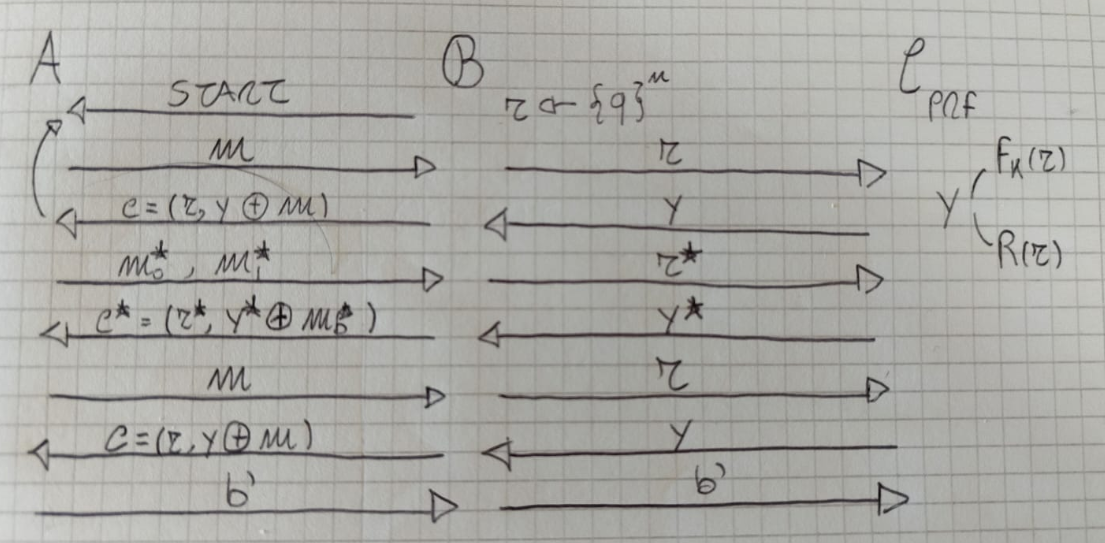 A B C_PRF
START r ← {9}^n
m r F_K(r)
c = (r, y ⊕ m) y y
R(r)
m_0^*, m_1^* r*
c* = (r*, y* ⊕ m_b^*) y*
m r
C = (r, y ⊕ m) y
b' b'